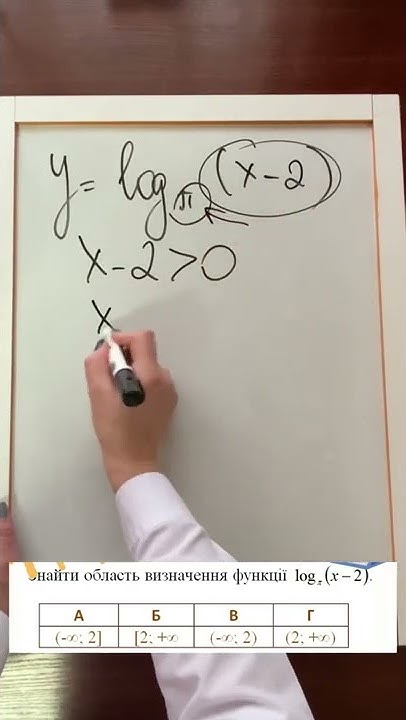 y = log_π (x-2)
x-2>0
x
Знайти область визначення функції log_π(x-2).
А Б В Г
(-∞; 2] [2; +∞ (-∞; 2) (2; +∞)